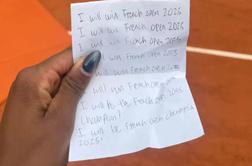 I will win French open 2025
I will win French open 2025
I will win French open 2025
I will win French open 2025
I will win French open 2025
I will win French open 2025
I will be French open 2025
Champion!
I will be French open champion
2025!